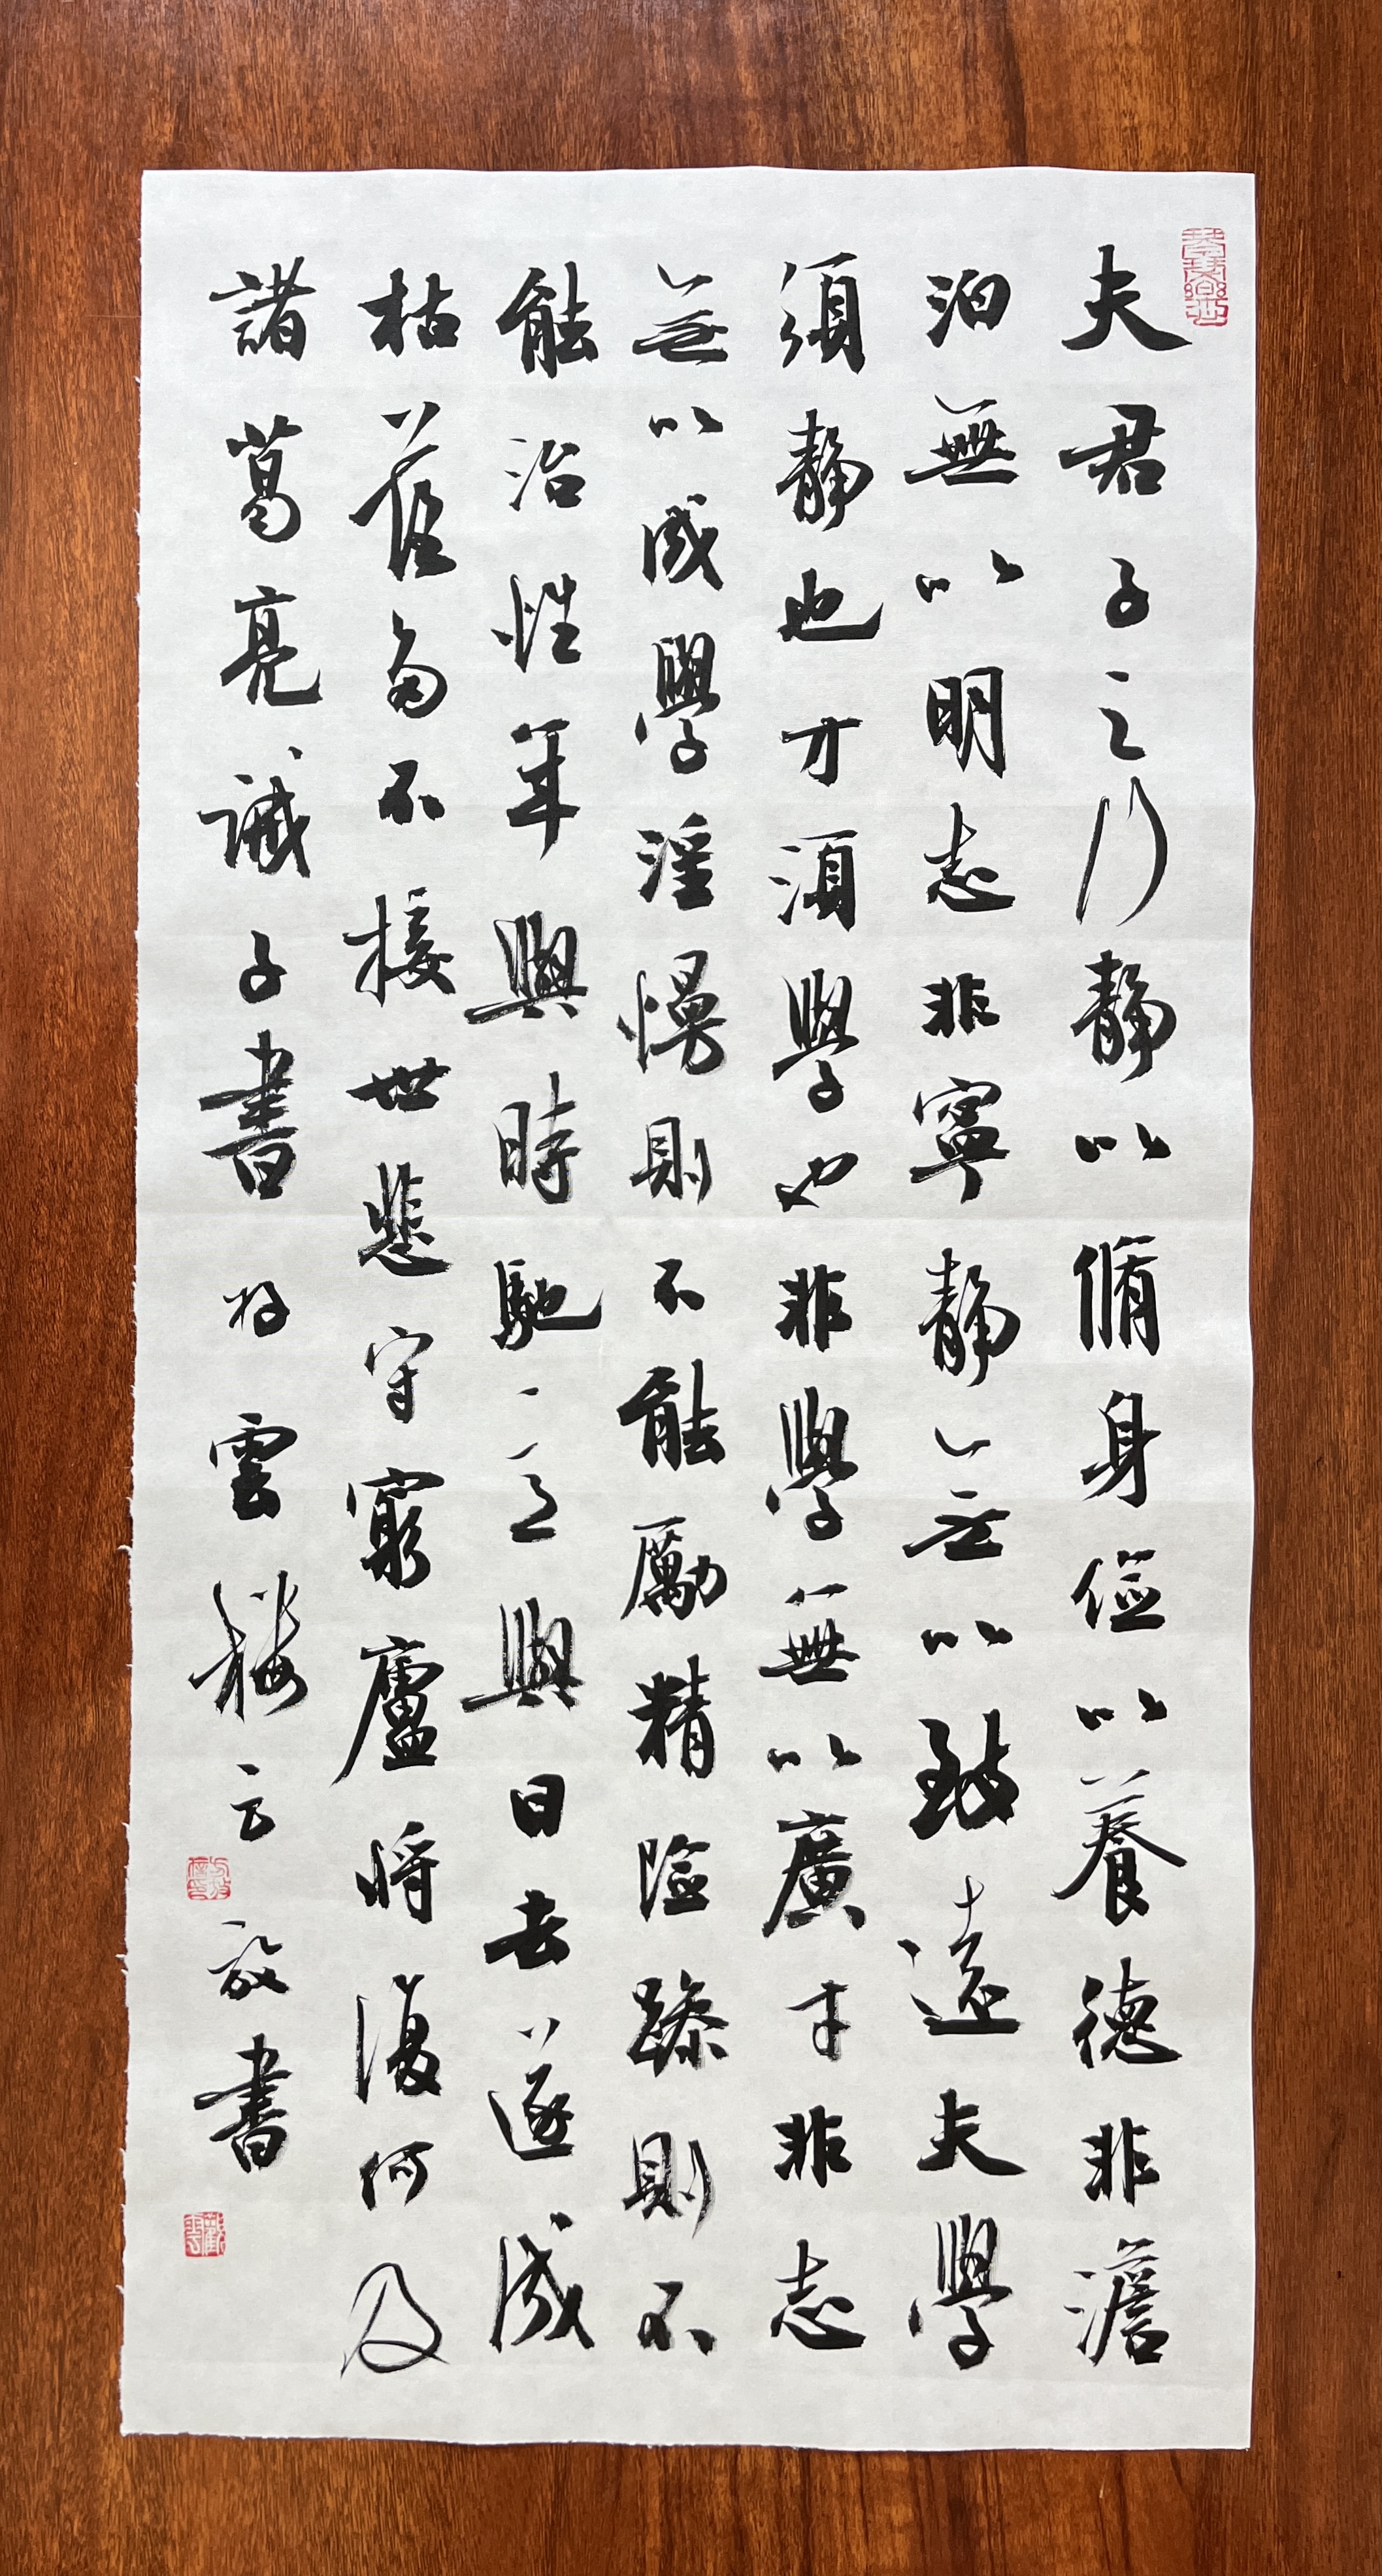 夫君子之行靜以脩身儉以養德非澹
泊無以明志非寧靜無以致遠夫學
須靜也才須學也非學無以廣才非志
無以成學淫慢則不能勵精險躁則不
能治性年與時馳意與日去遂成
枯落多不接世悲守窮廬將復何及
諸葛亮誡子書於雲樓方放書